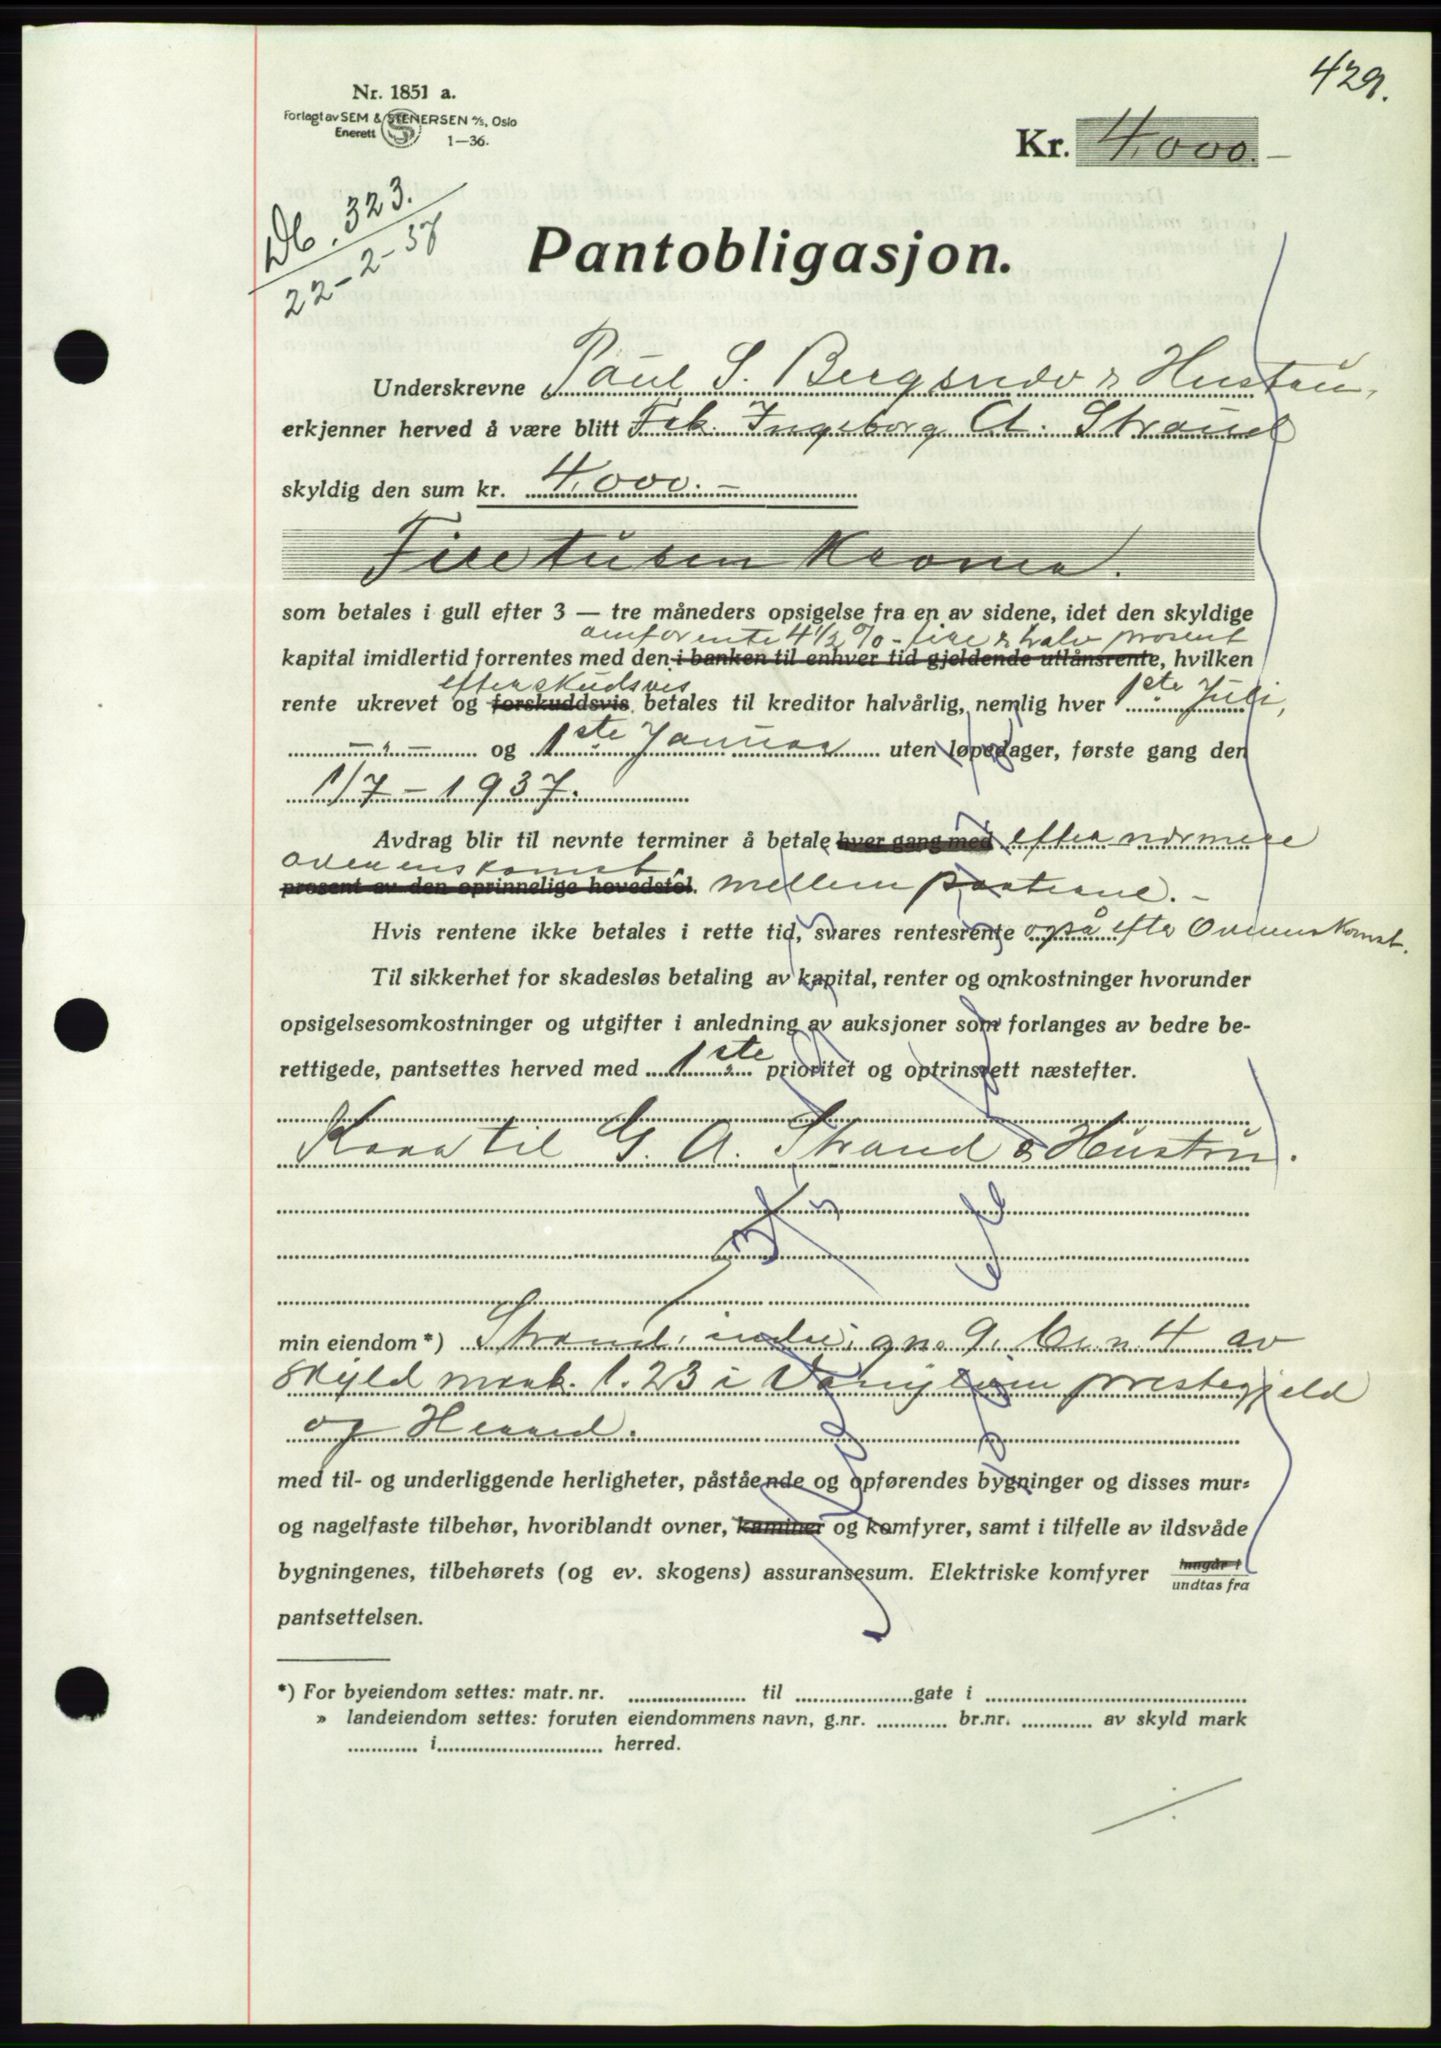 429.
Nr. 1851 a.
Forlagt av SEM & STENERSEN A/S, Oslo
Enerett
1—36.
Kr. 4.000.—
Db. 323.
22-2-37
Pantobligasjon.
Underskrevne Paul S. Bergsnev & Hustru,
erkjenner herved å være blitt Frk. Ingeborg A. Strand
skyldig den sum kr. 4.000.—
Firetusen Kroner.
som betales i gull efter 3 — tre måneders opsigelse fra en av sidene, idet den skyldige
omforente 4½% - fire & halv prosent
kapital imidlertid forrentes med den i banken til enhver tid gjeldende utlånsrente, hvilken
efterskudsvis
rente ukrevet og forskuddsvis betales til kreditor halvårlig, nemlig hver 1ste Juli,
— " — og 1ste Januar uten løpedager, første gang den
1/7 - 1937.
Avdrag blir til nevnte terminer å betale hver gang med efter nærmere
overenskomst
prosent av den oprinnelige hovedstol. mellem partene.-
Hvis rentene ikke betales i rette tid, svares rentesrente også efter Overenskomst.
Til sikkerhet for skadesløs betaling av kapital, renter og omkostninger hvorunder
opsigelsesomkostninger og utgifter i anledning av auksjoner som forlanges av bedre be-
rettigede, pantsettes herved med 1ste prioritet og optrinsrett næstefter.
Kaar til G. A. Strand & Hustru.
min eiendom*) Strand, indre, gn. 9, br. n. 4 av
skyld mark 1.23 i Vanylven prestegjeld
og Herred.
med til- og underliggende herligheter, påstående og opførendes bygninger og disses mur-
og nagelfaste tilbehør, hvoriblandt ovner, kaminer og komfyrer, samt i tilfelle av ildsvåde
bygningenes, tilbehørets (og ev. skogens) assuransesum. Elektriske komfyrer inngår i
undtas fra
pantsettelsen.
*) For byeiendom settes: matr. nr. ........ til ........ gate i ........
» landeiendom settes: foruten eiendommens navn, g.nr. ........ br.nr. ........ av skyld mark
........ i ........ herred.